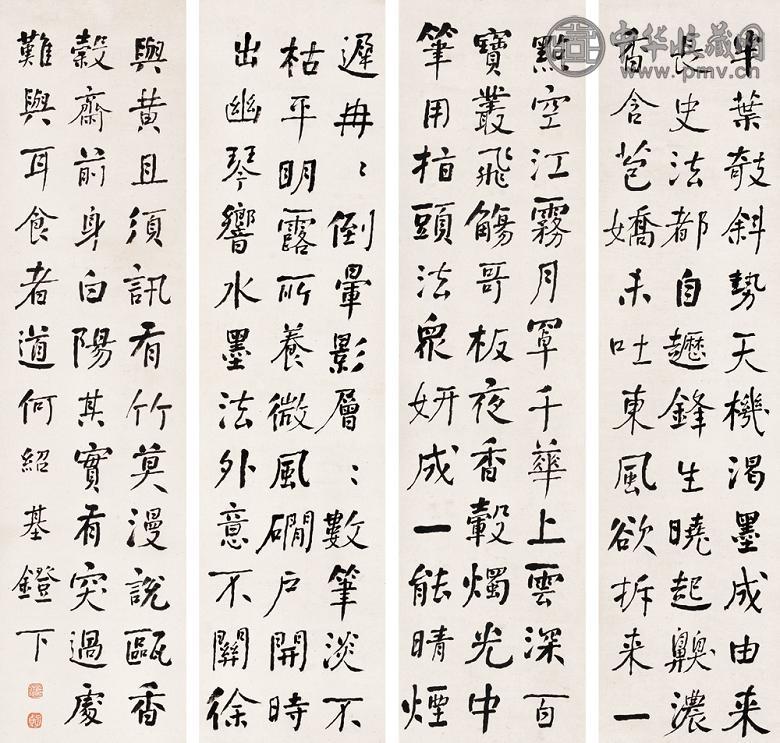 半葉攲斜勢天機渴墨成由來
長史法都自鋒生曉起齅濃
香含苞嬌未吐東風欲拆來一
點空江霧月罩千華上雲深百
寶叢飛觴哥板夜香轂燭光中
筆用指頭法眾妍成一能晴煙
遲冉〻倒暈影層〻數筆淡不
枯平明露所養微風磵戶開時
出幽琴響水墨法外意不關徐
與黃且須訊看竹莫漫說甌香
穀齋前身白陽其實有突過處
難與耳食者道何紹基鐙下
中华收藏网
www.pmv.cn